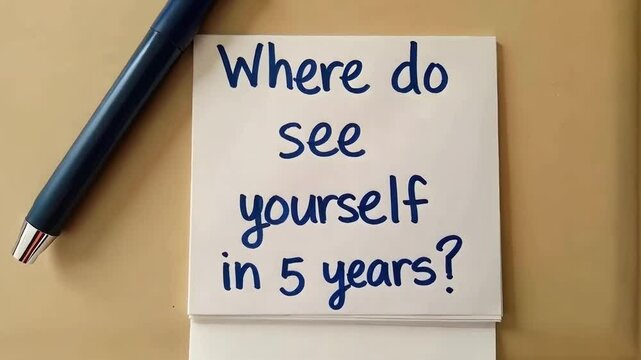 Where do
see
yourself
in 5 years?